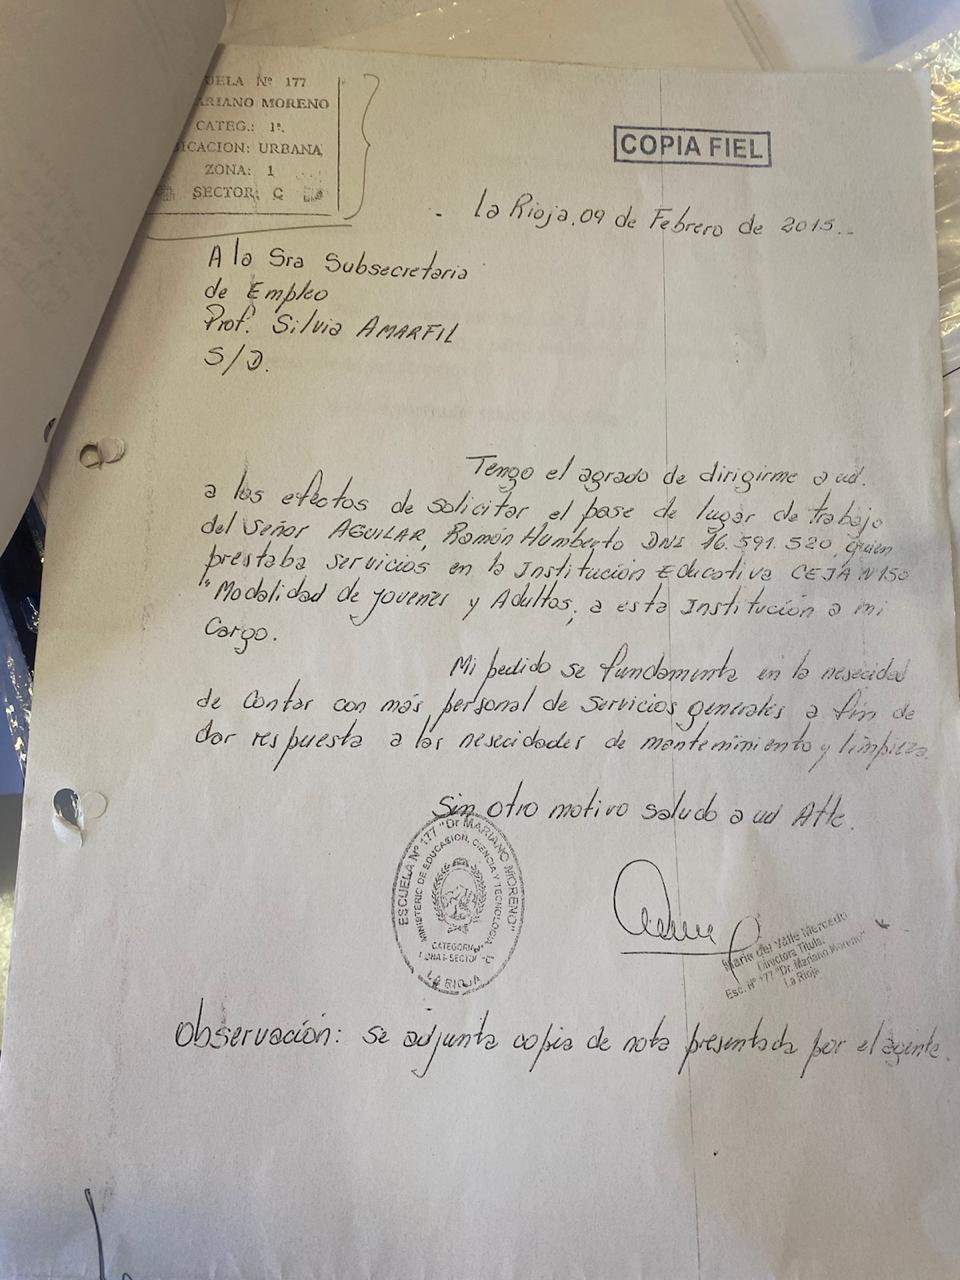 UELA Nº 177
ARIANO MORENO
CATEG.: 1ª.
ICACION: URBANA
ZONA: 1
SECTOR: C
COPIA FIEL
La Rioja, 09 de Febrero de 2015..
A la Sra Subsecretaria
de Empleo
Prof. Silvia AMARFIL
S/D.
Tengo el agrado de dirigirme a ud.
a los efectos de solicitar el pase de lugar de trabajo
del Señor AGUILAR, Ramón Humberto DNI 16.591.520, quien
prestaba servicios en la Institución Educativa CEJA Nº150
"Modalidad de Jovenes y Adultos, a esta Institución a mi
Cargo.
Mi pedido se fundamenta en la nesecidad
de contar con más personal de Servicios generales a fin de
dar respuesta a las nesecidades de manteminiento y limpieza.
Sin otro motivo saludo a ud Atte.
ESCUELA Nº 177 "Dr MARIANO MORENO"
MINISTERIO DE EDUCACION, CIENCIA Y TECNOLOGIA
CATEGORIA
SECTOR "C"
LA RIOJA
Maria del Valle Mercado
Directora Titular
Esc. Nº 177 "Dr. Mariano Moreno"
La Rioja
Observación: se adjunta copia de nota presentada por el agente.